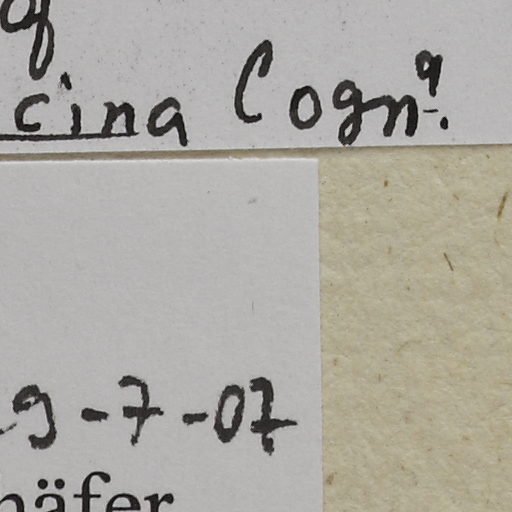 of
cina Cogn.
9-7-07
häfer